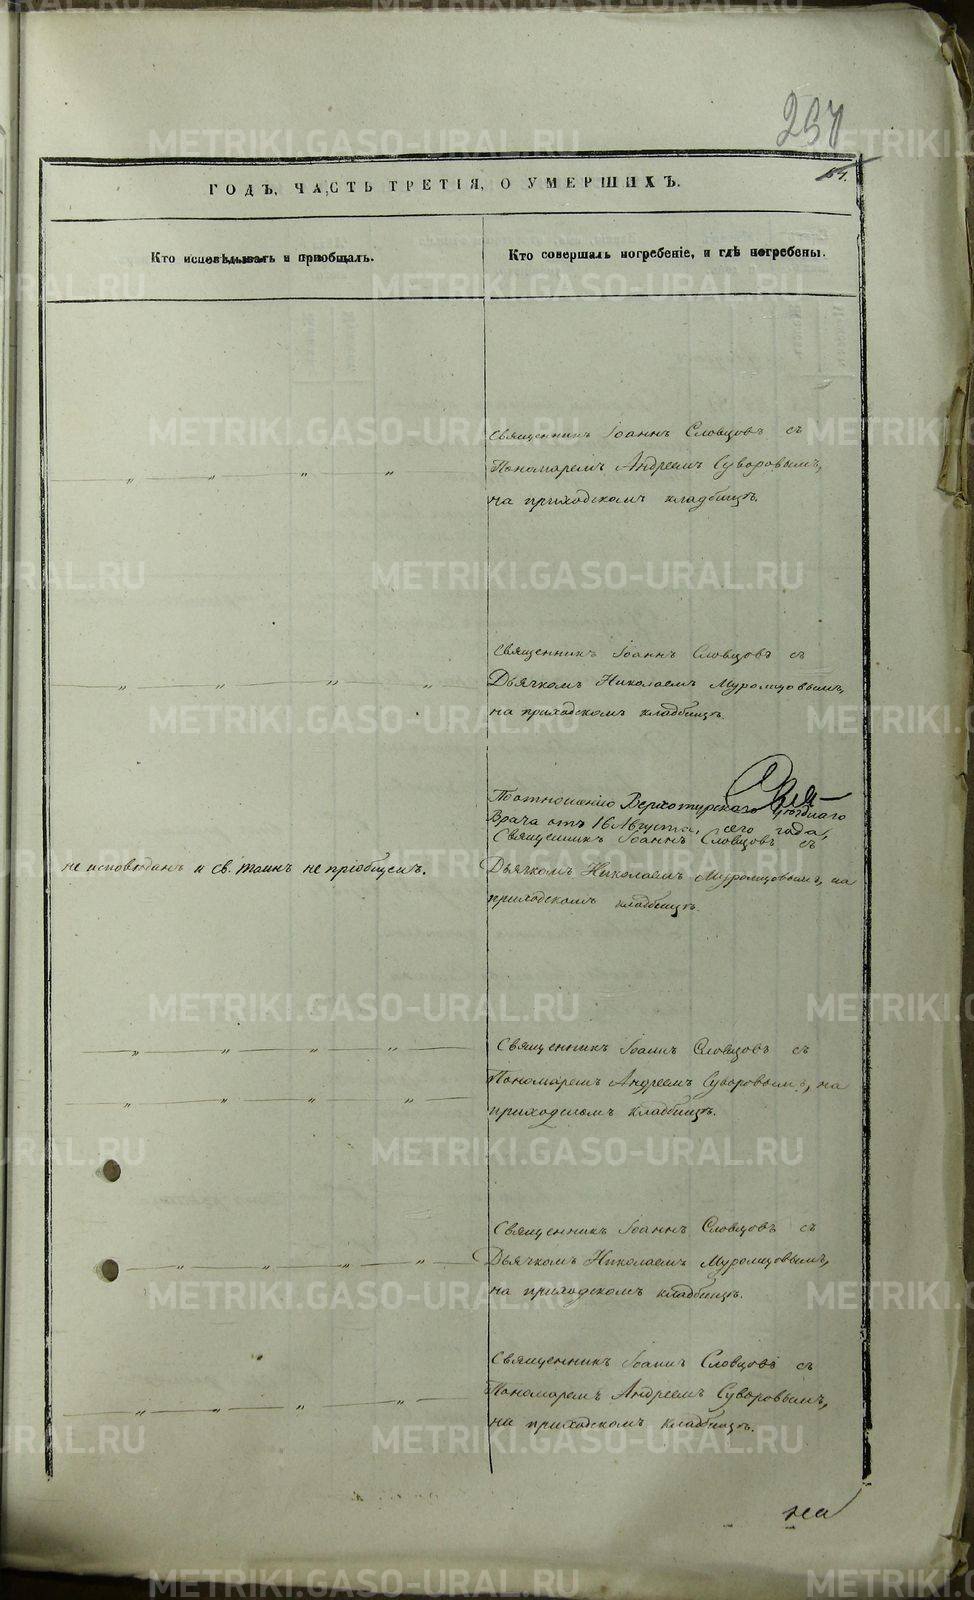 257
ГОДЪ, ЧАСТЬ ТРЕТІЯ, О УМЕРШИХЪ.
Кто исповѣдывалъ и пріобщалъ.
Кто совершалъ погребеніе, и гдѣ погребены.
Священникъ Іоаннъ Словцовъ съ
Пономаремъ Андреемъ Суворовымъ,
на приходскомъ кладбищѣ.
Священникъ Іоаннъ Словцовъ съ
Дьячкомъ Николаемъ Муромцовымъ,
на приходскомъ кладбищѣ.
не исповѣданъ и св. таинъ не пріобщенъ.
По отношенію Верхотурскаго уѣзднаго
Врача отъ 16 Августа, сего года,
Священникъ Іоаннъ Словцовъ съ
Дьячкомъ Николаемъ Муромцовымъ, на
приходскомъ кладбищѣ.
Священникъ Іоаннъ Словцовъ съ
Пономаремъ Андреемъ Суворовымъ, на
приходскомъ кладбищѣ.
Священникъ Іоаннъ Словцовъ съ
Дьячкомъ Николаемъ Муромцовымъ,
на приходскомъ кладбищѣ.
Священникъ Іоаннъ Словцовъ съ
Пономаремъ Андреемъ Суворовымъ,
на приходскомъ кладбищѣ.
METRIKI.GASO-URAL.RU